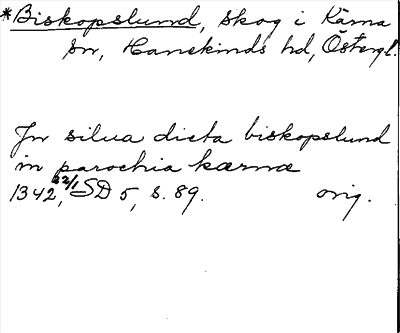 *Biskopslund, skog i Kärna
sn, Hanekinds hd, Östergl.
In silua dicta biskopslund
in parochia kærnæ
1342, 22/1 SD 5, s. 89. orig.